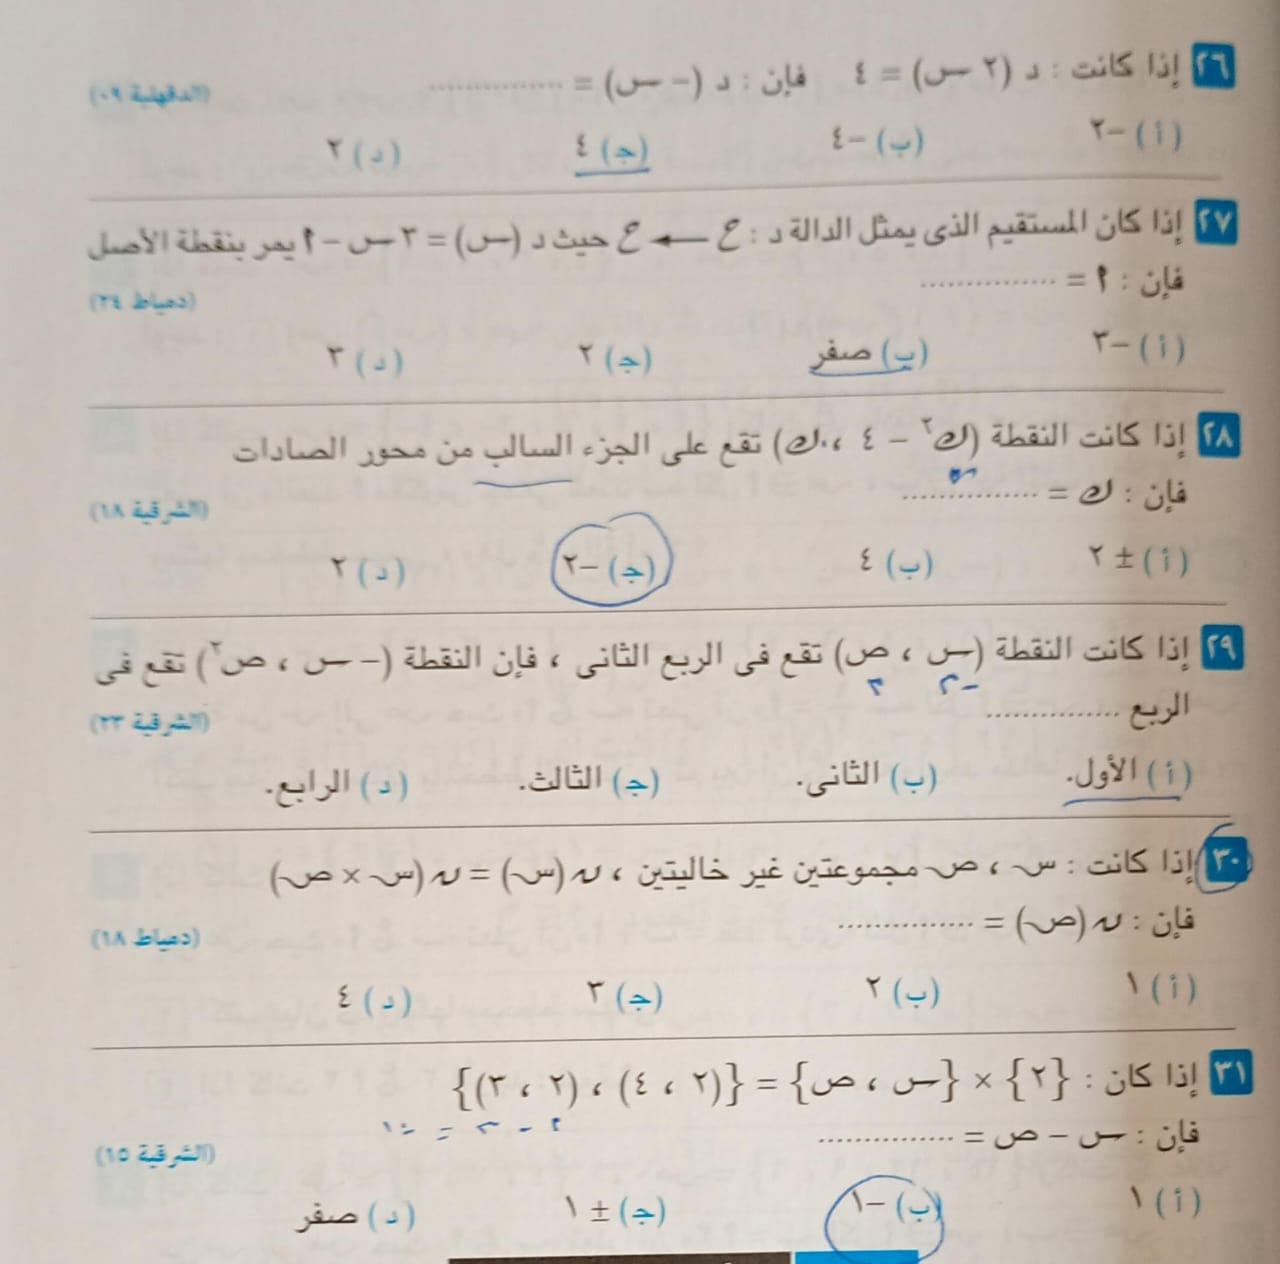 ٢٦ إذا كانت : د (٢ س) = ٤ فإن : د (− س) = ............... (الدقهلية ٠٩)
(أ) −٢ (ب) −٤ (جـ) ٤ (د) ٢
٢٧ إذا كان المستقيم الذى يمثل الدالة د : ع ← ع حيث د (س) = ٣ س − ٢ا يمر بنقطة الأصل
فإن : ا = ............... (دمياط ٢٤)
(أ) −٣ (ب) صفر (جـ) ٢ (د) ٣
٢٨ إذا كانت النقطة (ك² − ٤ ، ك) تقع على الجزء السالب من محور الصادات
فإن : ك = ............... (الشرقية ١٨)
(أ) ± ٢ (ب) ٤ (جـ) −٢ (د) ٢
٢٩ إذا كانت النقطة (س ، ص) تقع فى الربع الثانى ، فإن النقطة (− س ، ص²) تقع فى
-٢ ٣
الربع ............... (الشرقية ٢٣)
(أ) الأول. (ب) الثانى. (جـ) الثالث. (د) الرابع.
٣٠ إذا كانت : س ، ص مجموعتين غير خاليتين ، ن (س) = ن (س × ص)
فإن : ن (ص) = ............... (دمياط ١٨)
(أ) ١ (ب) ٢ (جـ) ٣ (د) ٤
٣١ إذا كان : {٢} × {س ، ص} = {(٢ ، ٤) ، (٢ ، ٣)}
فإن : س − ص = ............... (الشرقية ١٥)
(أ) ١ (ب) −١ (جـ) ± ١ (د) صفر